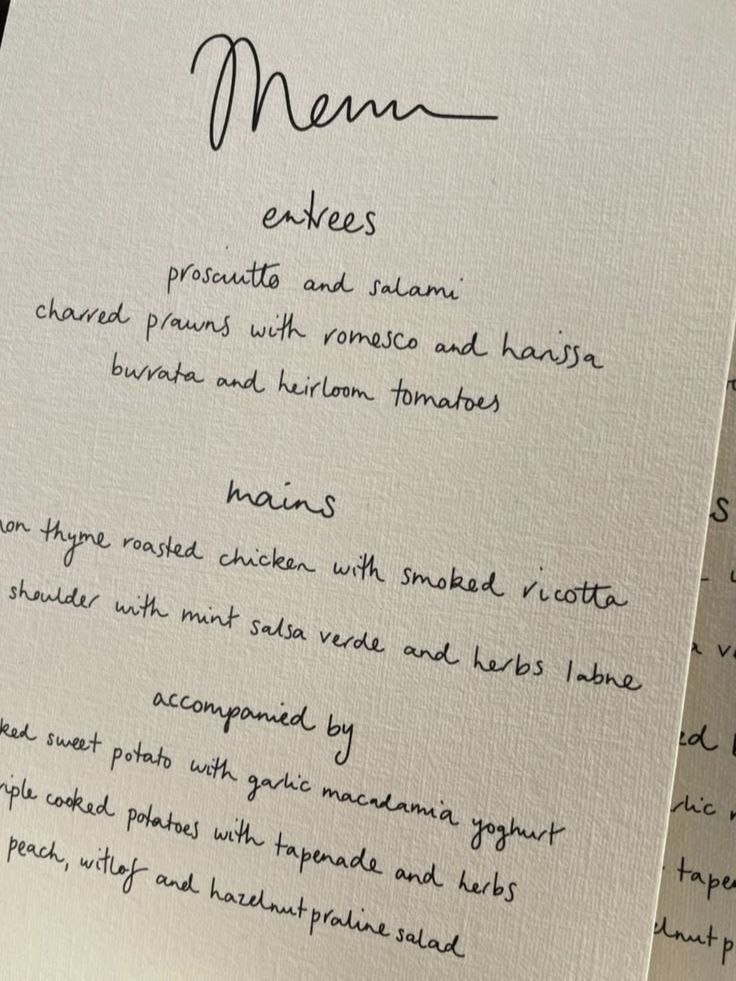 Menu
entrees
prosciutto and salami
charred prawns with romesco and harissa
burrata and heirloom tomatoes
mains
thyme roasted chicken with smoked ricotta
shoulder with mint salsa verde and herbs labne
accompanied by
sweet potato with garlic macadamia yoghurt
cooked potatoes with tapenade and herbs
peach, witlof and hazelnut praline salad